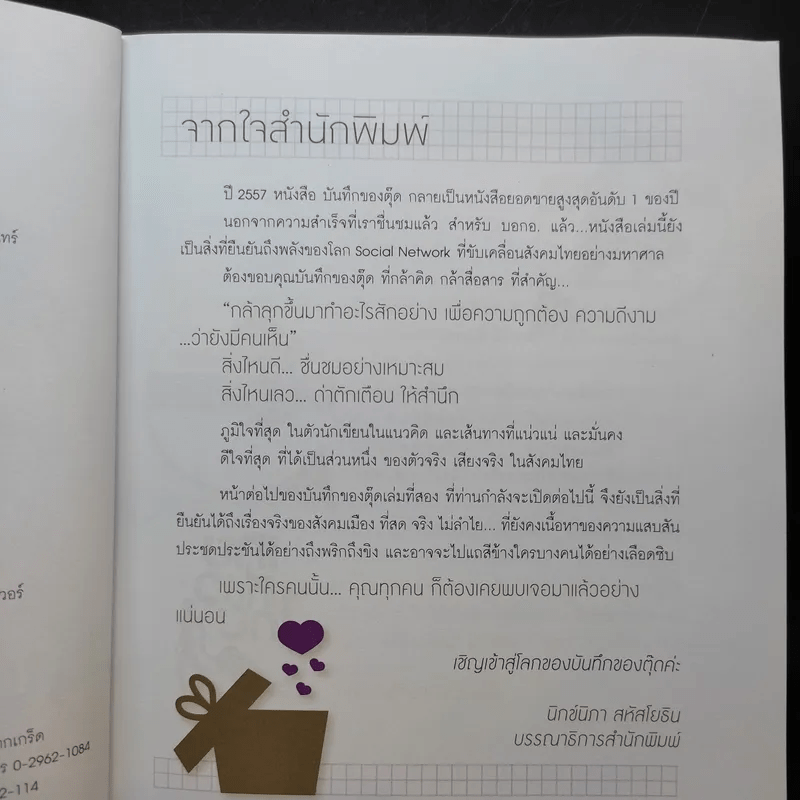 จากใจสำนักพิมพ์
ปี 2557 หนังสือ บันทึกของตุ๊ด กลายเป็นหนังสือยอดขายสูงสุดอันดับ 1 ของปี
นอกจากความสำเร็จที่เราชื่นชมแล้ว สำหรับ บอกอ. แล้ว...หนังสือเล่มนี้ยัง
เป็นสิ่งที่ยืนยันถึงพลังของโลก Social Network ที่ขับเคลื่อนสังคมไทยอย่างมหาศาล
ต้องขอบคุณบันทึกของตุ๊ด ที่กล้าคิด กล้าสื่อสาร ที่สำคัญ...
“กล้าลุกขึ้นมาทำอะไรสักอย่าง เพื่อความถูกต้อง ความดีงาม
...ว่ายังมีคนเห็น”
สิ่งไหนดี... ชื่นชมอย่างเหมาะสม
สิ่งไหนเลว... ด่าตักเตือน ให้สำนึก
ภูมิใจที่สุด ในตัวนักเขียนในแนวคิด และเส้นทางที่แน่วแน่ และมั่นคง
ดีใจที่สุด ที่ได้เป็นส่วนหนึ่ง ของตัวจริง เสียงจริง ในสังคมไทย
หน้าต่อไปของบันทึกของตุ๊ดเล่มที่สอง ที่ท่านกำลังจะเปิดต่อไปนี้ จึงยังเป็นสิ่งที่
ยืนยันได้ถึงเรื่องจริงของสังคมเมือง ที่สด จริง ไม่ลำไย... ที่ยังคงเนื้อหาของความแสบสัน
ประชดประชันได้อย่างถึงพริกถึงขิง และอาจจะไปแถสีข้างใครบางคนได้อย่างเลือดซิบ
เพราะใครคนนั้น... คุณทุกคน ก็ต้องเคยพบเจอมาแล้วอย่าง
แน่นอน
เชิญเข้าสู่โลกของบันทึกของตุ๊ดค่ะ
นิกข์นิภา สหัสโยธิน
บรรณาธิการสำนักพิมพ์
0-2962-1084
2-114